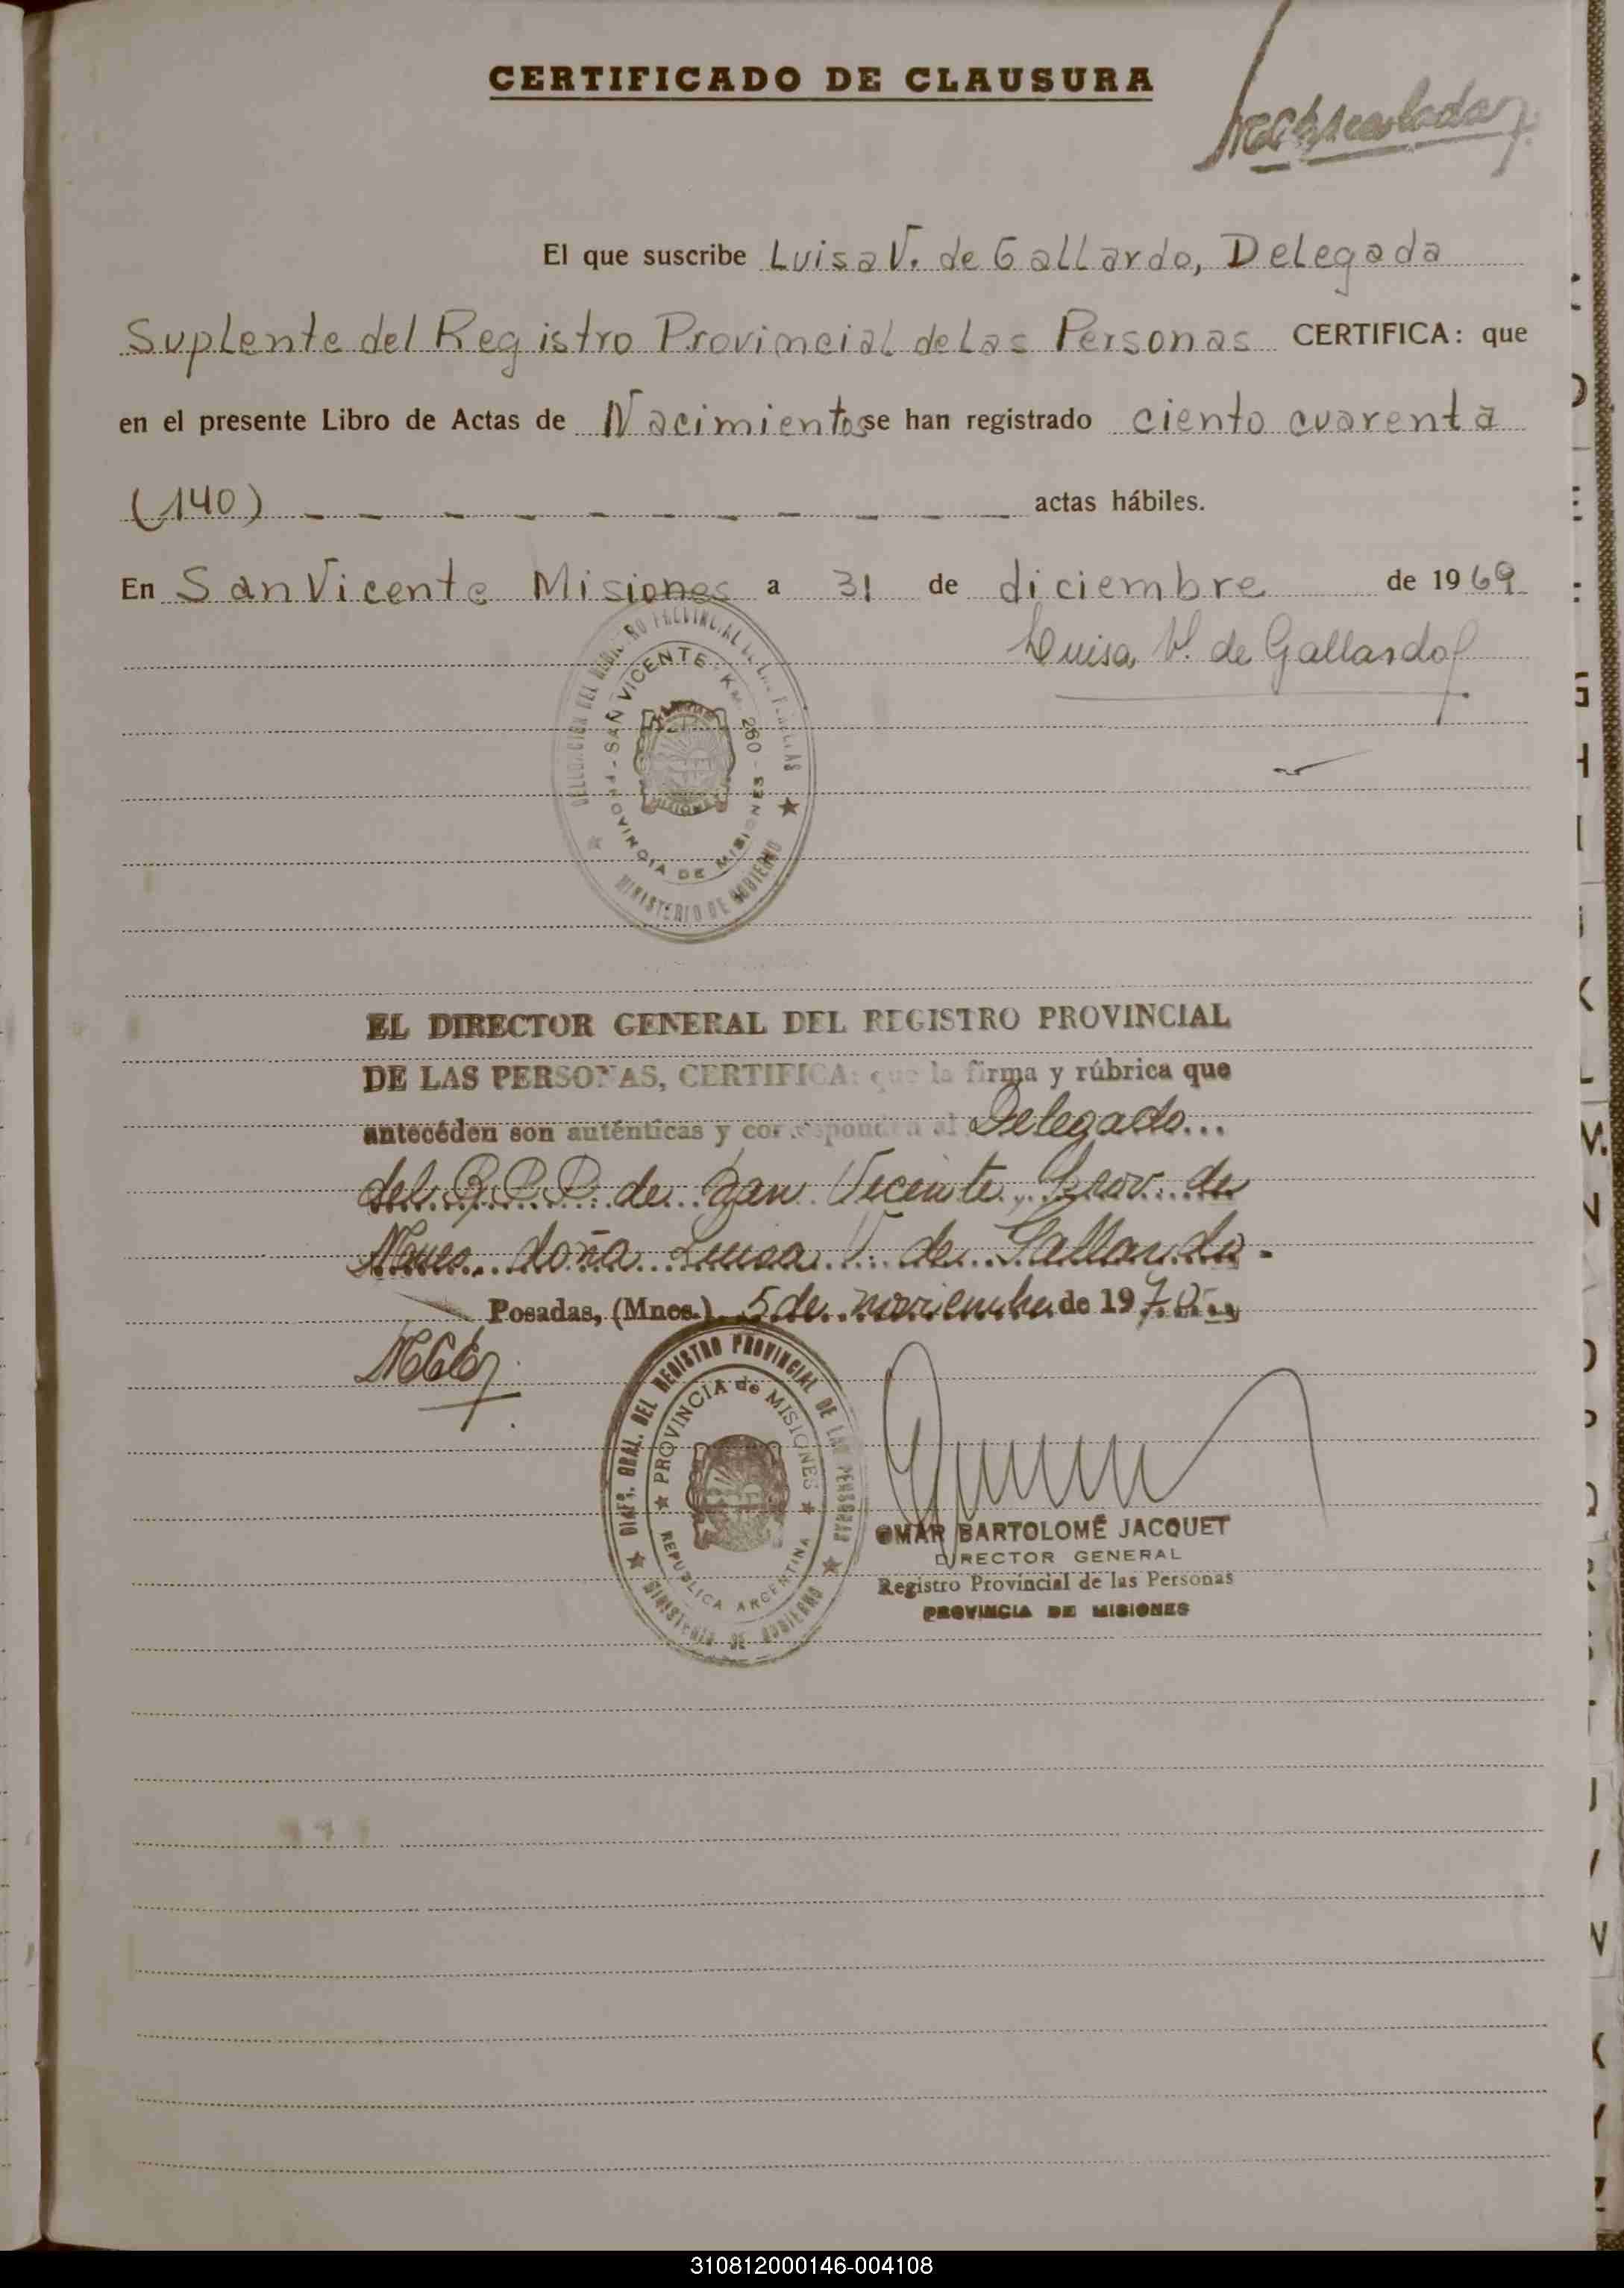 CERTIFICADO DE CLAUSURA
El que suscribe Luisa V. de Gallardo, Delegada
Suplente del Registro Provincial de Las Personas CERTIFICA: que
en el presente Libro de Actas de Nacimientos se han registrado ciento cuarenta
(140) _ _ _ _ _ _ _ _ _ _ _ actas hábiles.
En San Vicente Misiones a 31 de diciembre de 1969
Luisa V. de Gallardo
DELEGACION DEL REGISTRO PROVINCIAL DE LAS PERSONAS
SAN VICENTE - Km. 260 -
PROVINCIA DE MISIONES
MISIONES
MINISTERIO DE GOBIERNO
EL DIRECTOR GENERAL DEL REGISTRO PROVINCIAL
DE LAS PERSONAS, CERTIFICA: que la firma y rúbrica que
antecéden son auténticas y corresponden al Delegado...
del R.P.P. de San Vicente, Prov. de
Mnes. doña Luisa V. de Gallardo.-
Posadas, (Mnes.) 5 de noviembre de 1970.-
DIREC. GRAL. DEL REGISTRO PROVINCIAL DE LAS PERSONAS
PROVINCIA de MISIONES
REPUBLICA ARGENTINA
MINISTERIO DE GOBIERNO
OMAR BARTOLOMÉ JACQUET
DIRECTOR GENERAL
Registro Provincial de las Personas
PROVINCIA DE MISIONES
G
H
I
J
K
L
M.
N
O
P
Q
R
S
T
U
V
W
X
Y
Z
310812000146-004108